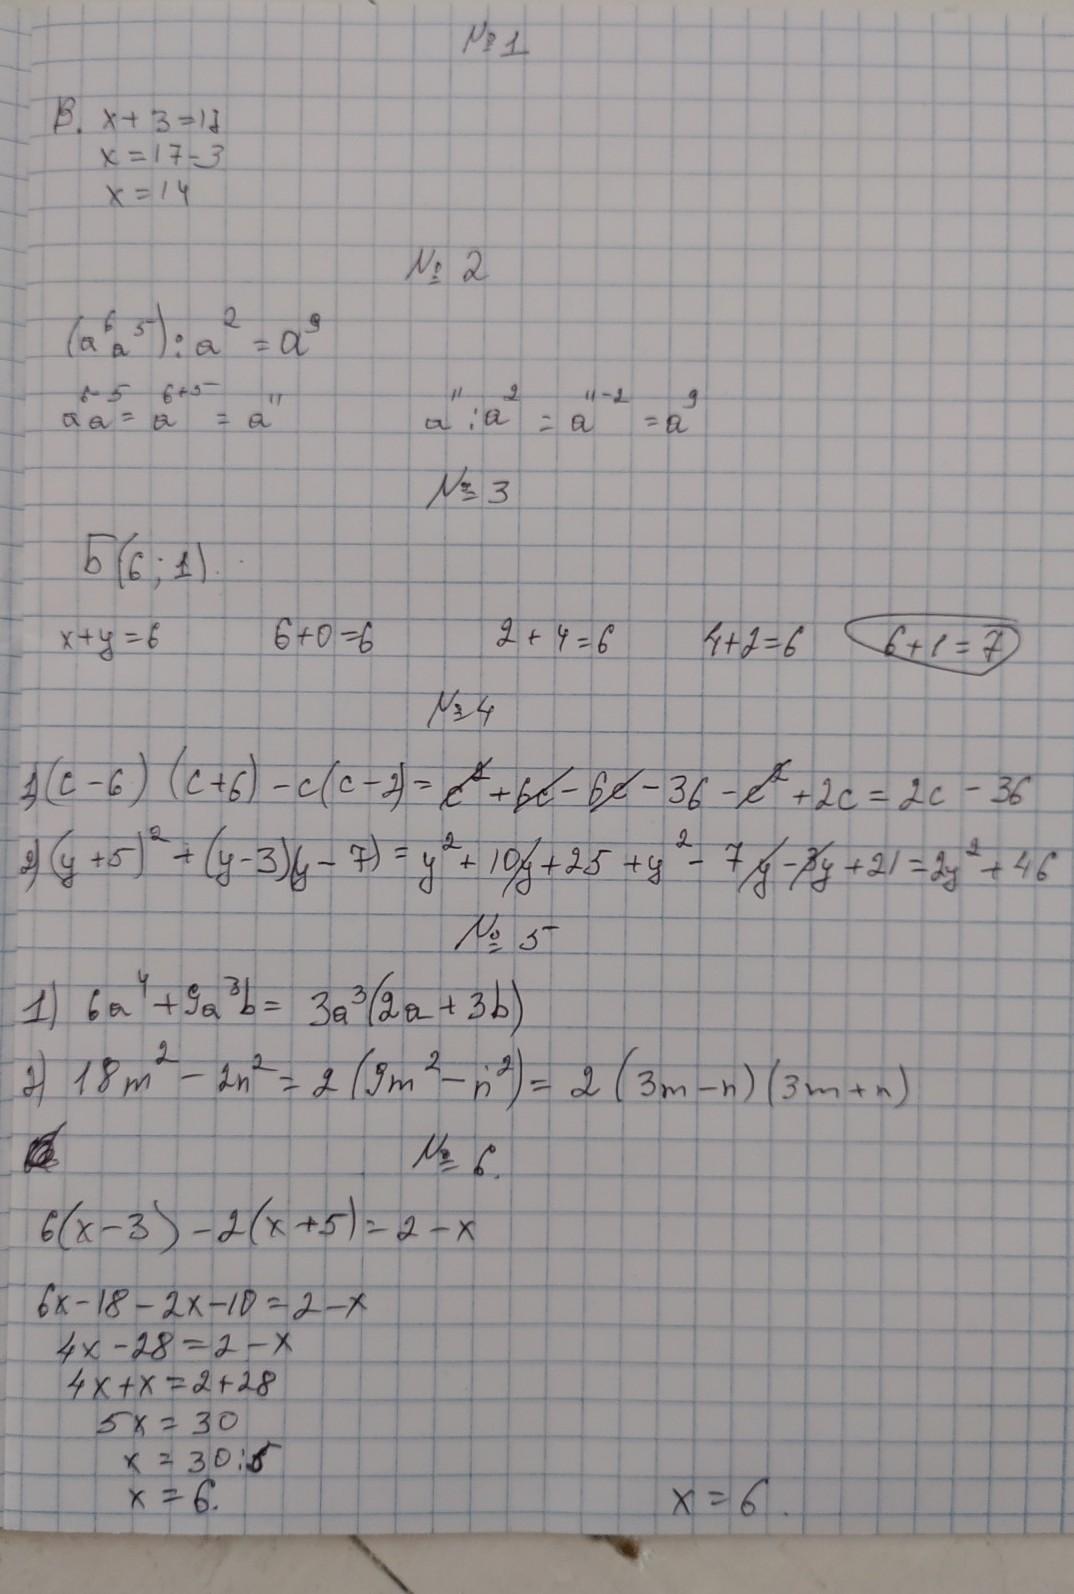 №1
В. x + 3 = 17
x = 17 - 3
x = 14
№ 2
(a⁶a⁵) : a² = a⁹
a⁶a⁵ = a⁶⁺⁵ = a¹¹ a¹¹ : a² = a¹¹⁻² = a⁹
№ 3
Б (6 ; 1).
x + y = 6 6 + 0 = 6 2 + 4 = 6 4 + 2 = 6 6 + 1 = 7
№ 4
1) (c - 6) (c + 6) - c(c - 2) = c² + 6c - 6c - 36 - c² + 2c = 2c - 36
2) (y + 5)² + (y - 3)(y - 7) = y² + 10y + 25 + y² - 7y - 3y + 21 = 2y² + 46
№ 5
1) 6a⁴ + 9a³b = 3a³(2a + 3b)
2) 18m² - 2n² = 2 (9m² - n²) = 2 (3m - n) (3m + n)
№ 6.
6(x - 3) - 2(x + 5) = 2 - x
6x - 18 - 2x - 10 = 2 - x
4x - 28 = 2 - x
4x + x = 2 + 28
5x = 30
x = 30 : 5
x = 6. x = 6.